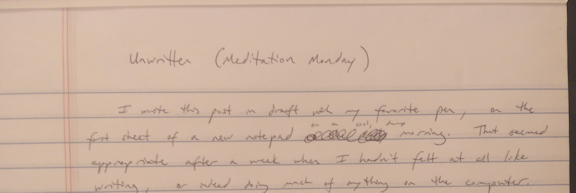 Unwritten (Meditation Monday)
I wrote this post in draft with my favorite pen, on the
first sheet of a new notepad on a cool, damp morning. That seemed
appropriate after a week when I hadn't felt at all like
writing, or indeed doing much of anything on the computer.